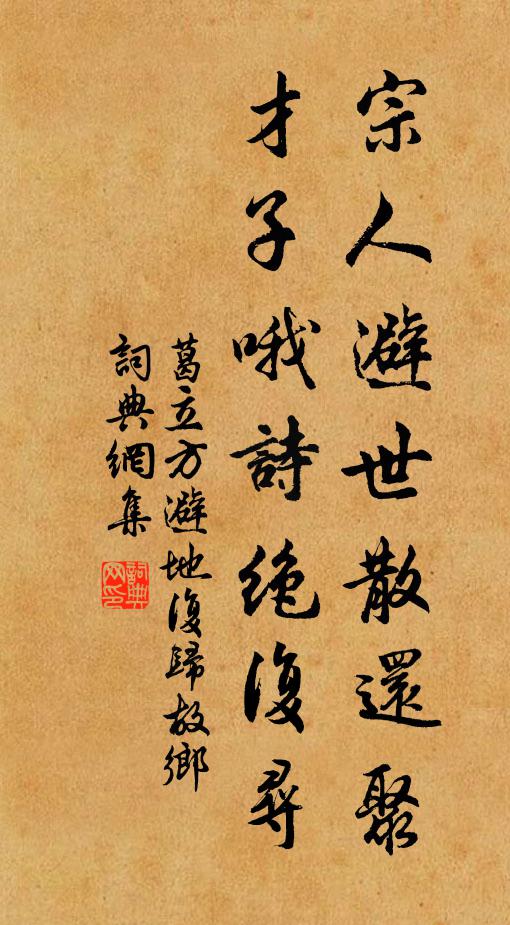 宗人避世散還聚
才子哦詩絶復尋
葛立方避地復歸故鄉
詞典網集
詞典网印